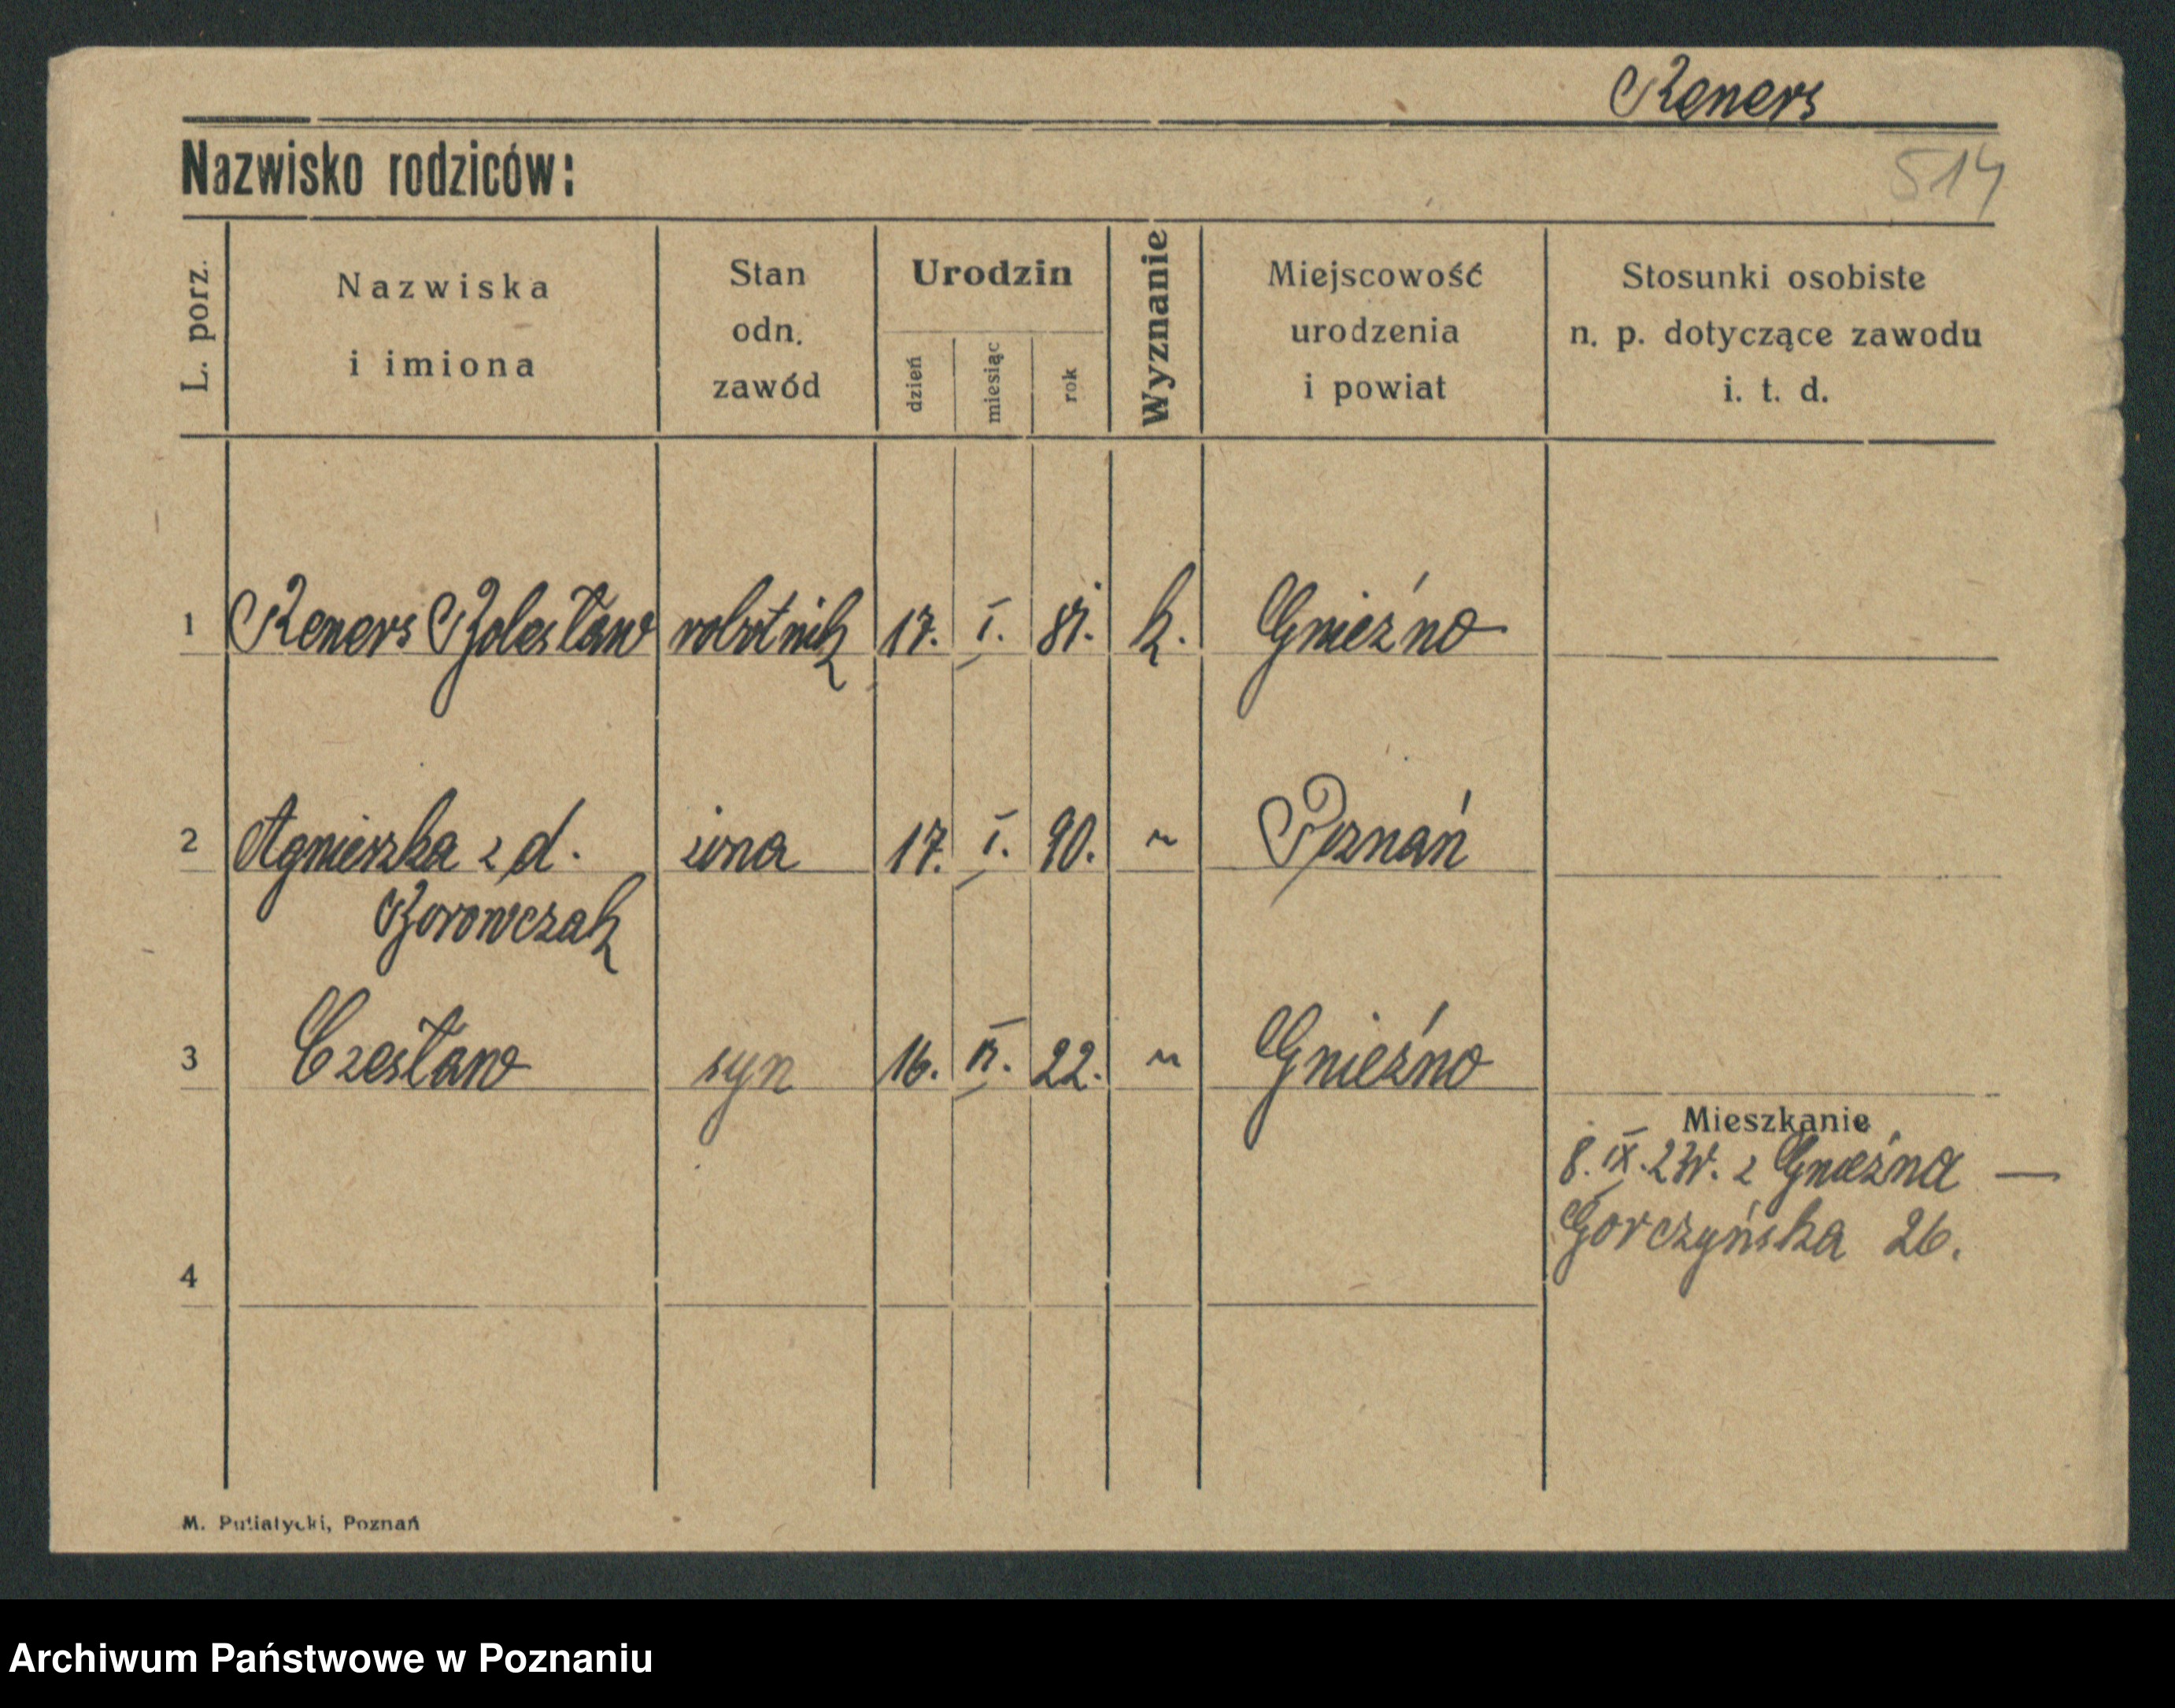 Reners
Nazwisko rodziców:
514
L. porz.
Nazwiska
i imiona
Stan
odn.
zawód
Urodzin
dzień
miesiąc
rok
Wyznanie
Miejscowość
urodzenia
i powiat
Stosunki osobiste
n. p. dotyczące zawodu
i. t. d.
1 Reners Bolesław robotnik 17. I. 81. k. Gnieźno
2 Agnieszka z d. żona 17. I. 90. " Poznań
Borowczak
3 Czesław syn 16. II. 22. " Gnieźno
Mieszkanie
8. IX. 23r. z Gnieźna —
Gorczyńska 26.
4
M. Putiatycki, Poznań
Archiwum Państwowe w Poznaniu